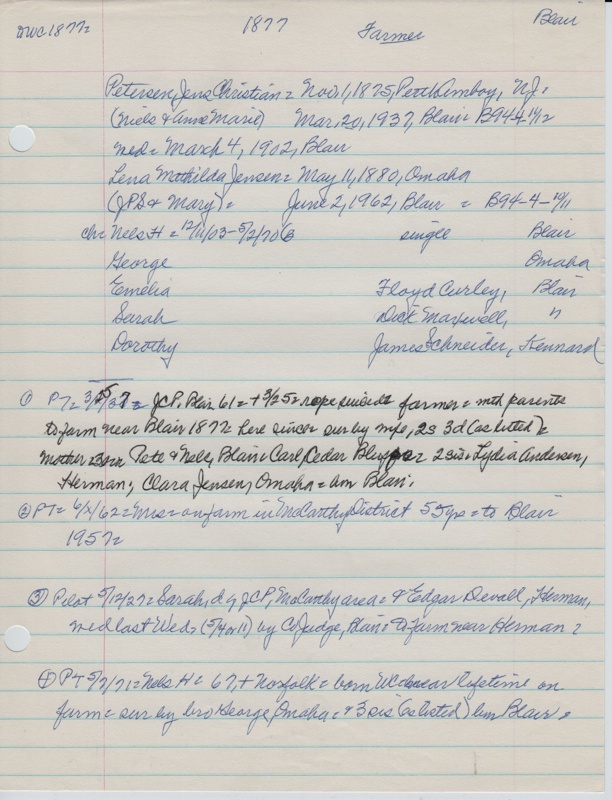 DWC 1877= 1877 Farmer Blair
Petersen, Jens Christian = Nov. 1, 1875, Perth Amboy, N.J.
(Niels & Anne Marie) Mar. 20, 1937, Blair = B94-4-10/12
wed = March 4, 1902, Blair
Lena Mathilda Jensen = May 11, 1880, Omaha
(JPS & Mary) = June 2, 1962, Blair = B94-4-10/11
ch = Nels H = 12/11/03-5/2/70 single Blair
George Omaha
Emelia Floyd Curley, Blair
Sarah Dick Maxwell, "
Dorothy James Schneider, Kennard
① PT= = JCP, Blair 61 = + 3/25 = rope suicide farmer = wth parents
to farm near Blair 1877 = here since = sur by wife, 2s 3d (as listed) =
mother = 3 Pete & Nels, Blair = Carl, Cedar 2 sis = Lydia Andersen,
Herman; Clara Jensen, Omaha = bur Blair.
② PT= 6/ /62 = Mrs = on farm in McCarthy District 55 yrs = to Blair
1957=
③ Pilot 5/12/27 = Sarah, d of JCP, McCarthy area = & Edgar Devall, Herman,
wed last Wed = (5/4 or 11) by Co Judge, Blair = to farm near Herman =
④ PT 5/7/71 = Nels H = 67, + Norfolk = born WC = near lifetime on
farm = sur by bro George, Omaha = & 3 sis (as listed) bur Blair =